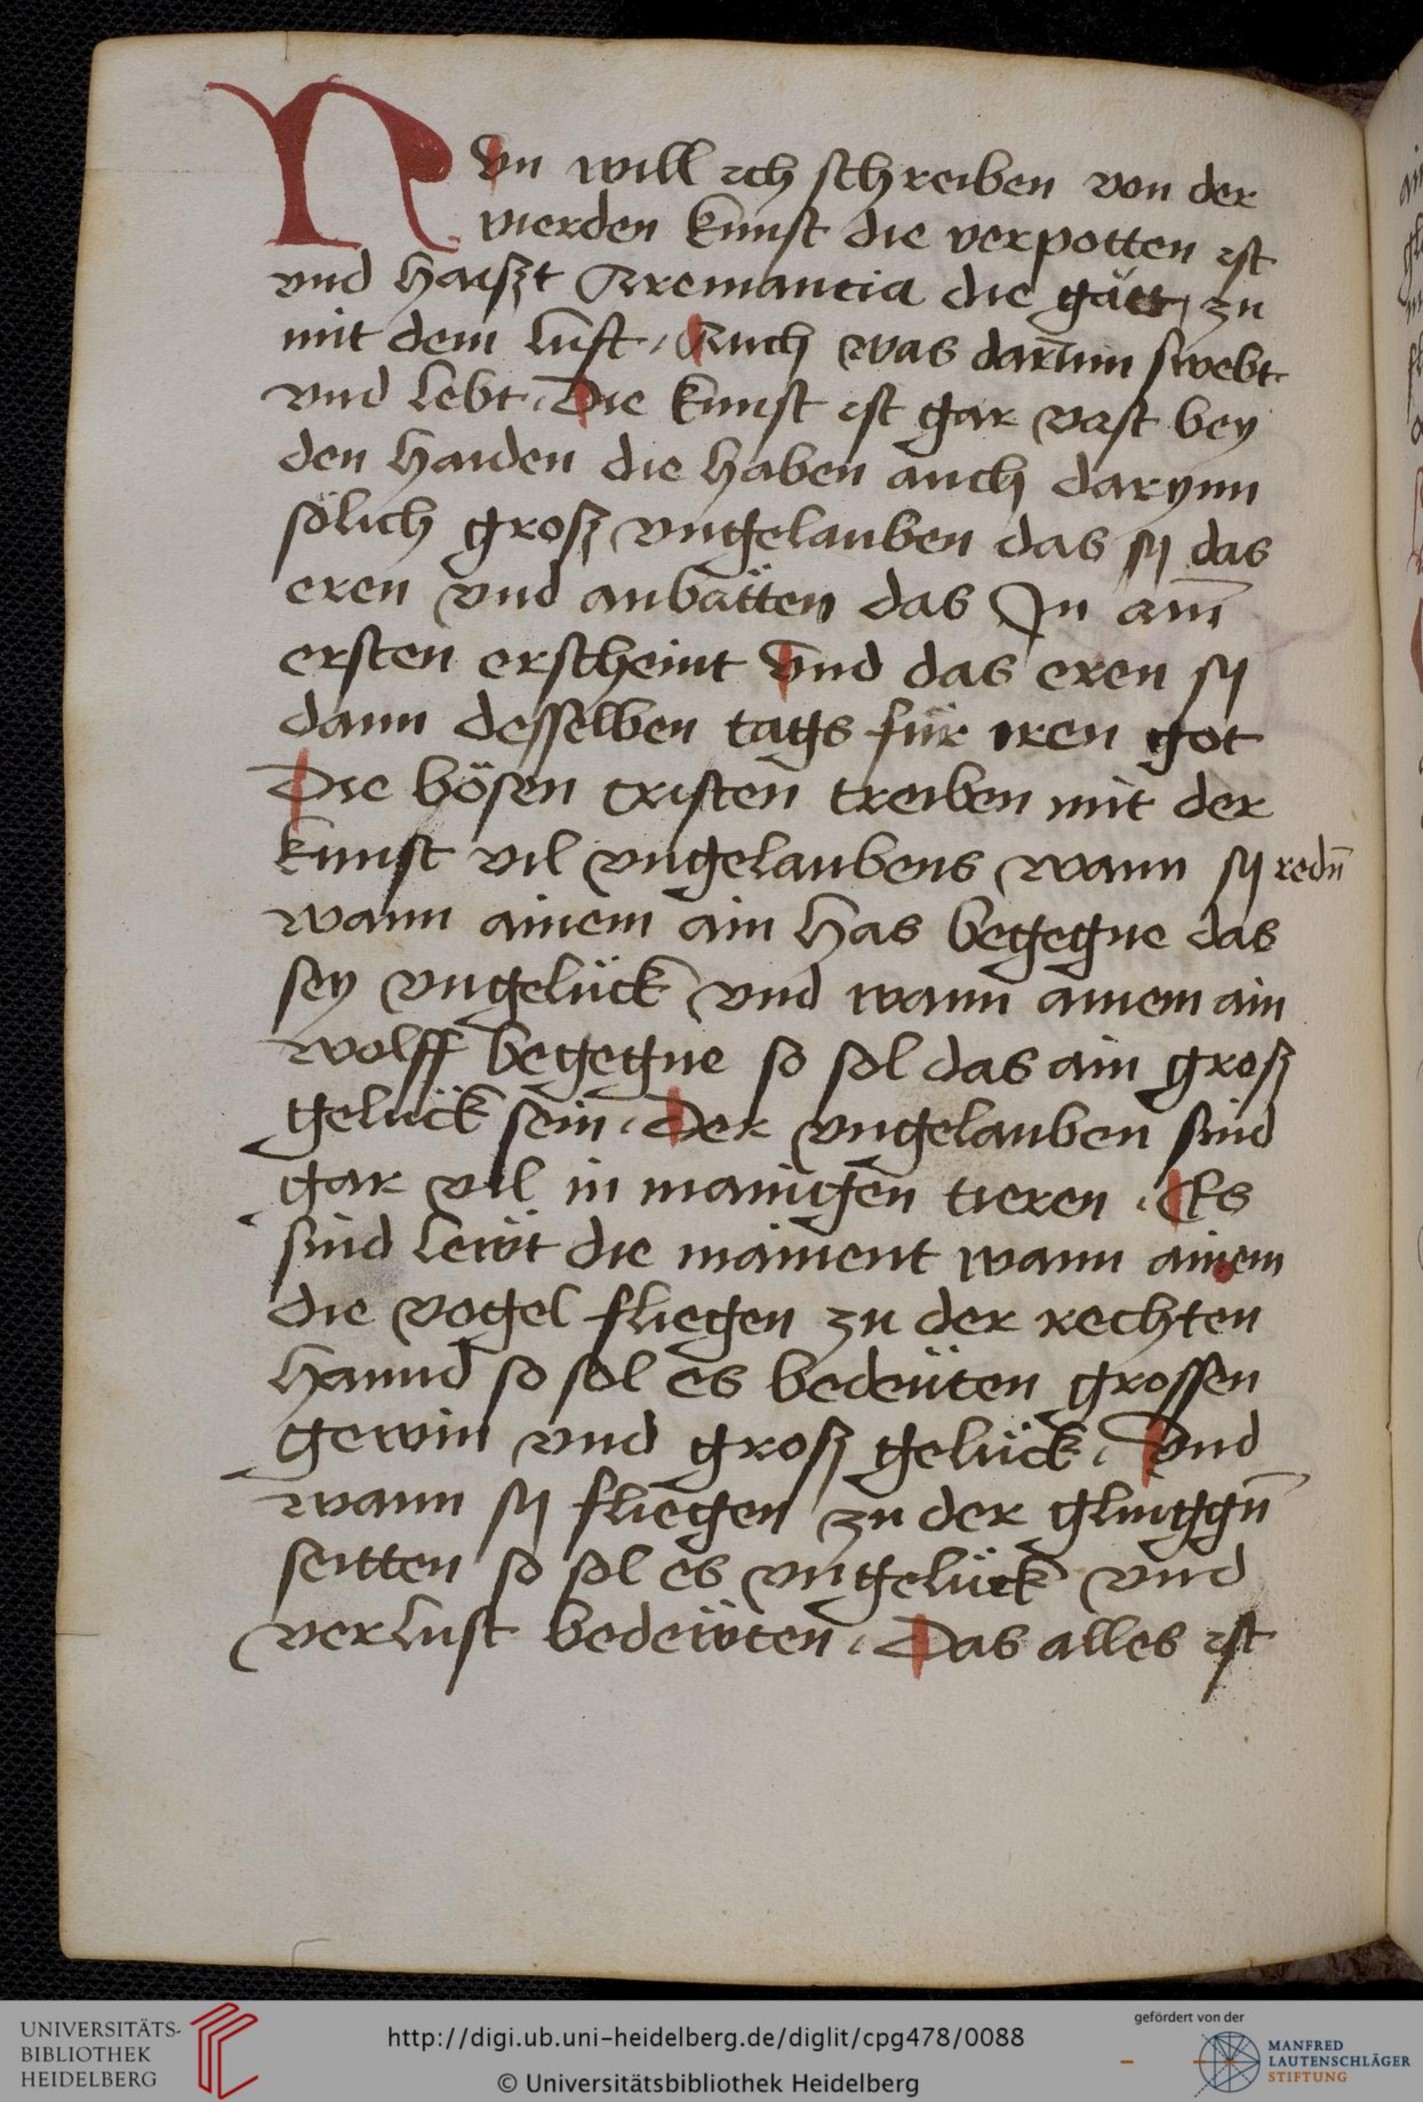 Nvn will ich schreiben von der
vierden kunst die verpotten ist
vnd haiſzt Aremancia die gätt zu
mit dem lufft. Auch was darūnn swebt
vnd lebt. Die kunst ist gar vast bey
den haiden die haben auch darynn
sölich grosz vngelauben das sy das
eren vnd anbätten das In am̄
ersten erscheint Vnd das eren sy
dann desselben tags für iren got
Die bösen cristen treiben mit der
kunst vil vngelaubens wann sy redn̄
wann ainem ain has begegne das
sey vngelück vnd wann ainem ain
wolff begegne so sol das ain grosz
gelück sein. Der vngelauben sind
gar vil in manigen tieren. Es
sind lewt die mainent wann ainem
die vogel fliegen zu der rechten
hannd so sol es bedeüten grossen
gewin vnd grosz gelück. Vnd
wann sy fliegen zu der glinggn̄
seitten so sol es vngelück vnd
verlust bedewten. Das alles ist
UNIVERSITÄTS-
BIBLIOTHEK
HEIDELBERG
http://digi.ub.uni-heidelberg.de/diglit/cpg478/0088
© Universitätsbibliothek Heidelberg
gefördert von der
MANFRED
LAUTENSCHLÄGER
STIFTUNG